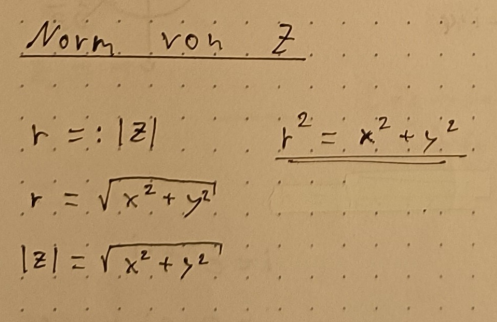 Norm von Z
r =: |Z|
r² = x² + y²
r = √(x² + y²)
|Z| = √(x² + y²)